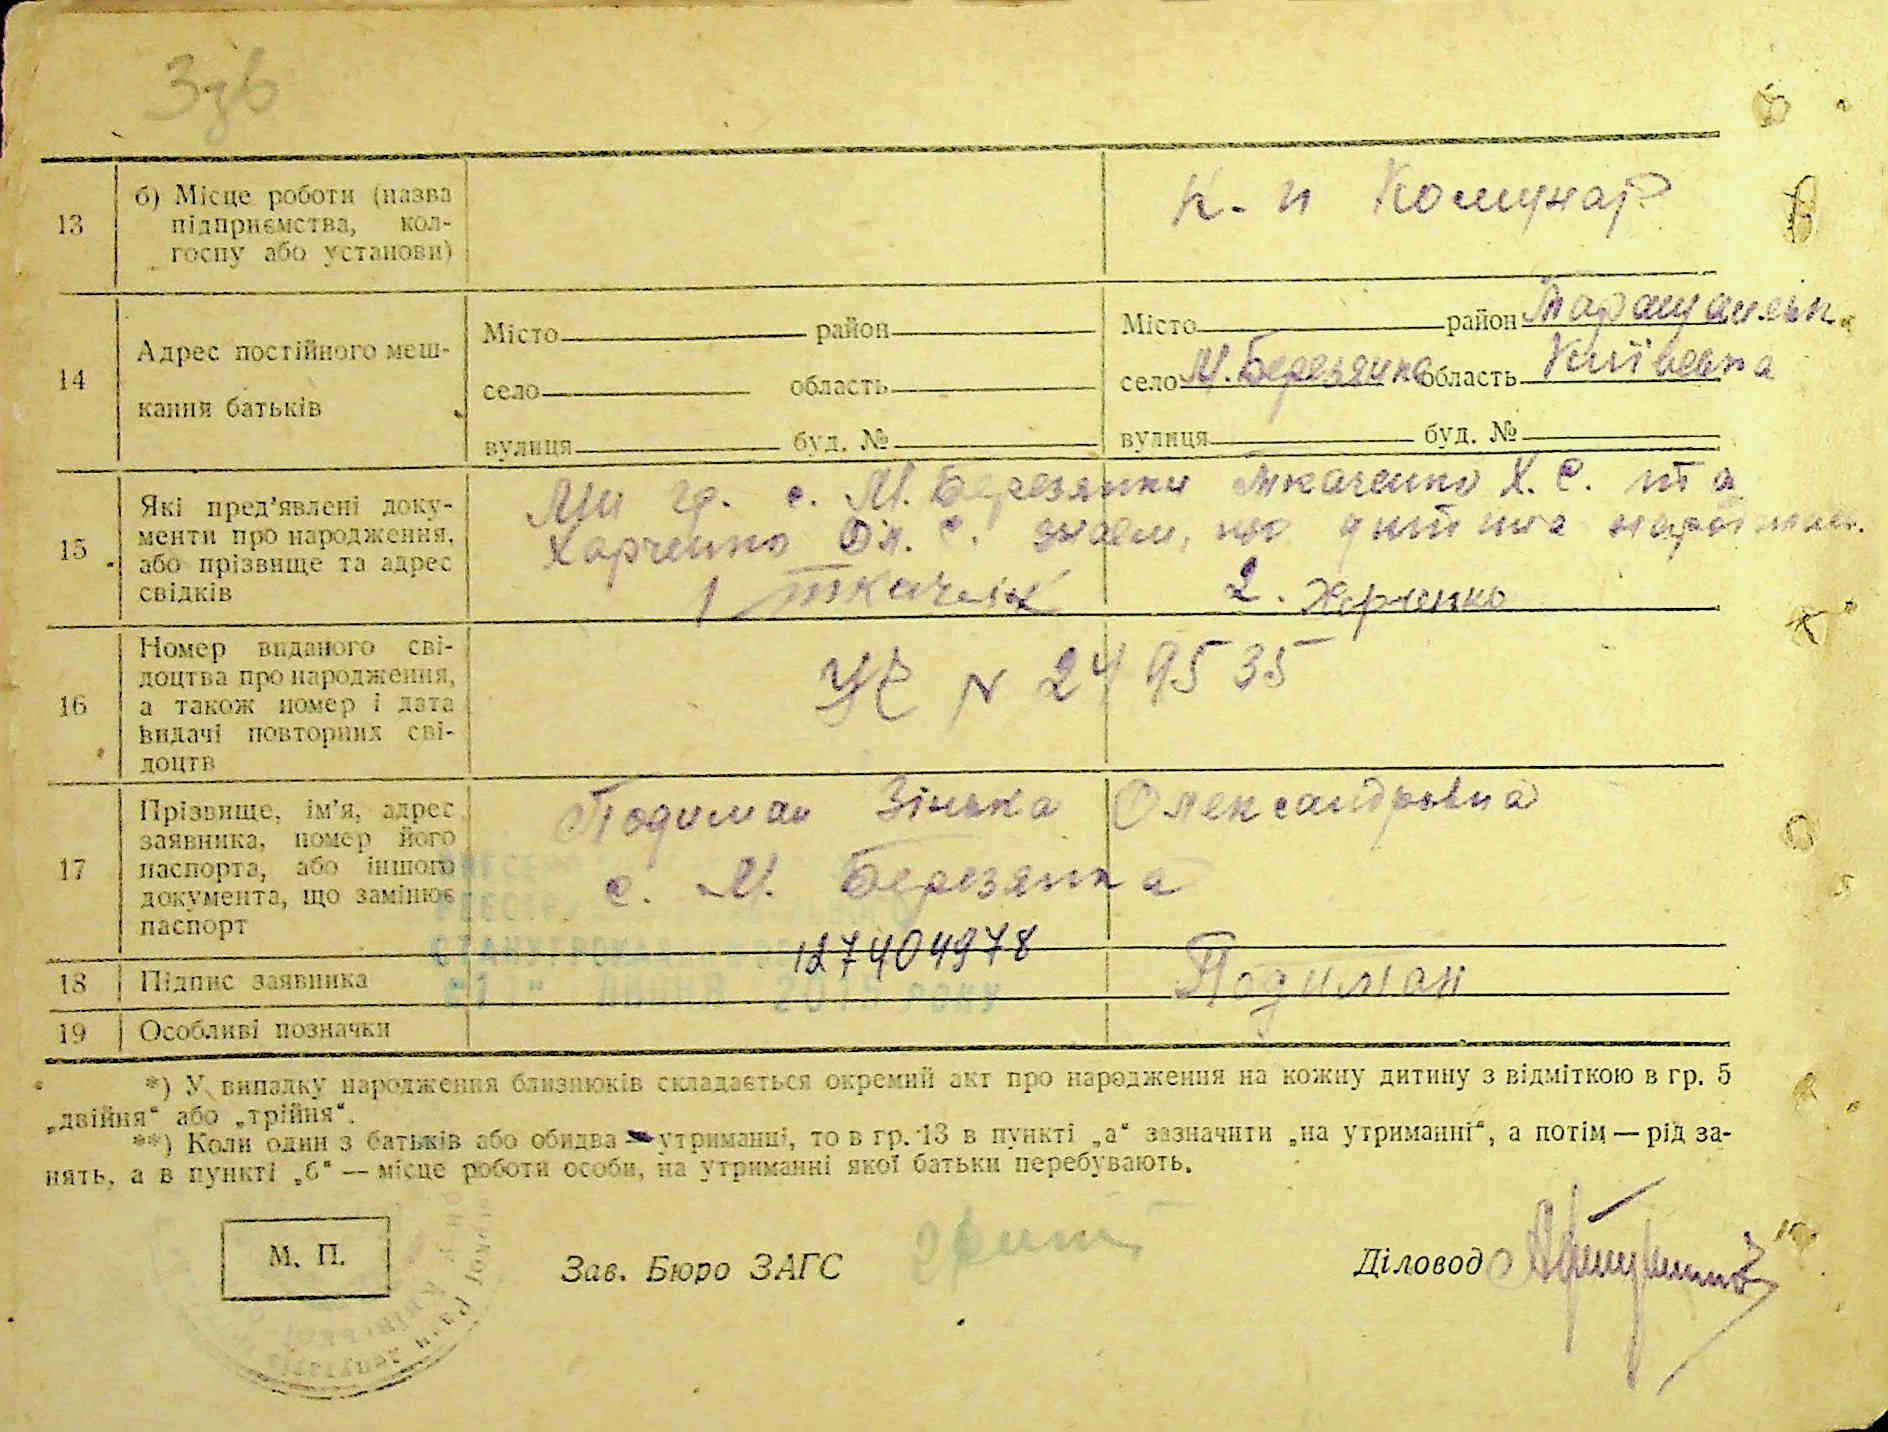 Ззв
13
б) Місце роботи (назва
підприємства, кол-
госпу або установи)
к-п Комунар
14
Адрес постійного меш-
кання батьків
Місто район
село область
вулиця буд. №
Місто район Таращанськ.
село М. Березянка область Київська
вулиця буд. №
15
Які пред'явлені доку-
менти про народження,
або прізвище та адрес
свідків
Ми гр. с. М. Березянки Ткаченко Х. С. та
Харченко Ол. С. знаєм, що дитина народилась.
1 Ткаченк 2. Харченко
16
Номер виданого сві-
доцтва про народження,
а також номер і дата
видачі повторних сві-
доцтв
УЄ N 249535
17
Прізвище, ім'я, адрес
заявника, номер його
паспорта, або іншого
документа, що замінює
паспорт
Подиман Зінька Олександрівна
с. М. Березянка
127404978
18
Підпис заявника
Подиман
19
Особливі позначки
2015 року
*) У випадку народження близнюків складається окремий акт про народження на кожну дитину з відміткою в гр. 5
„двійня“ або „трійня“.
**) Коли один з батьків або обидва — утриманці, то в гр. 13 в пункті „а“ зазначити „на утриманні“, а потім — рід за-
нять, а в пункті „б“ — місце роботи особи, на утриманні якої батьки перебувають.
М. П.
Зав. Бюро ЗАГС
Діловод